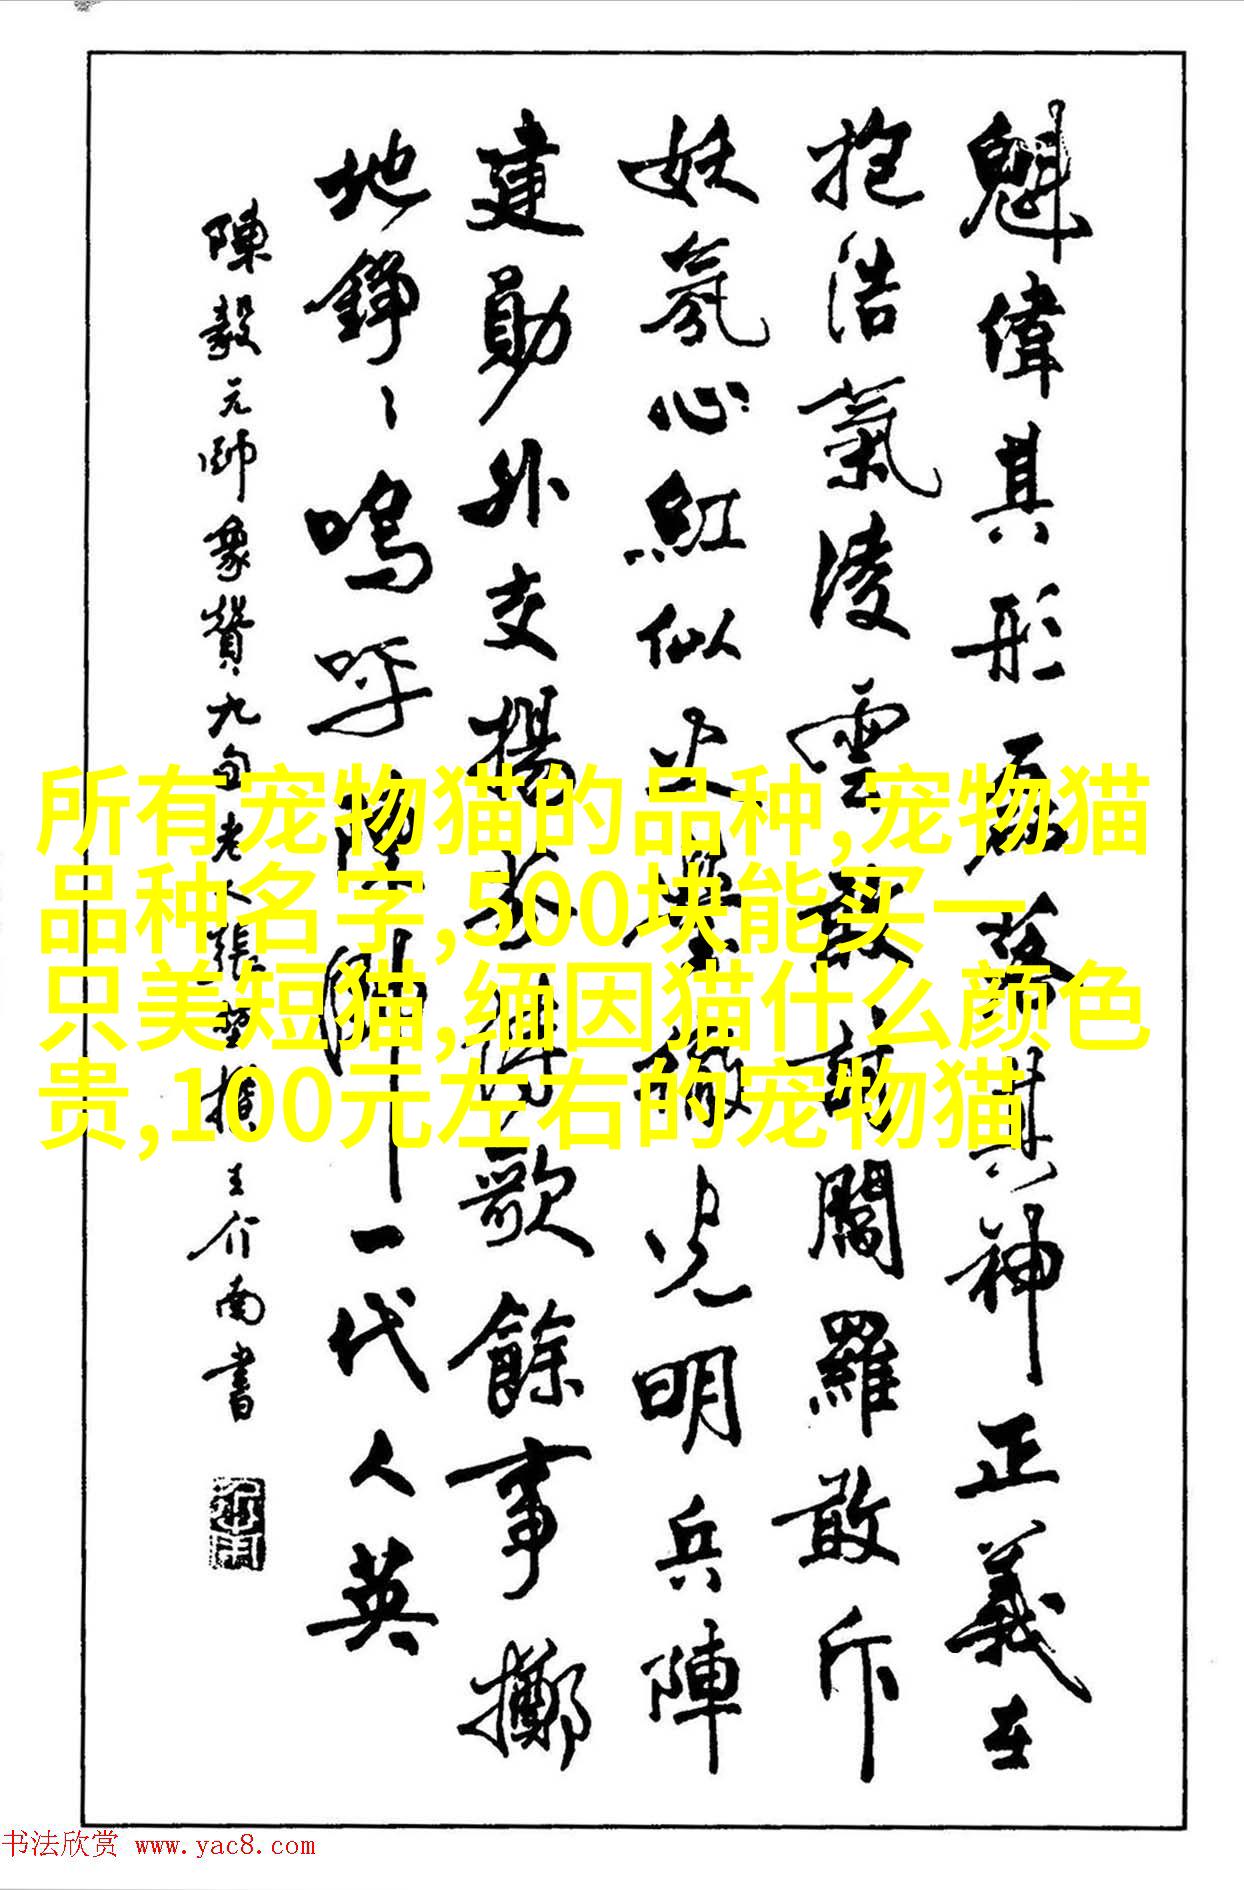 魁偉其形磊落其神正義在
抱浩氣淩雲閻羅敢斥
妖氛心紅似火光明兵陣
建勛外交揚歌餘事擲
地錚〻嗚呼陳帥一代人英
陳毅元帥象贊九旬老人張撰王介南書
所有宠物猫的品种,宠物猫
品种名字,500块能买一
只美短猫,缅因猫什么颜色
贵,100元左右的宠物猫
书法欣赏 www.yac8.com